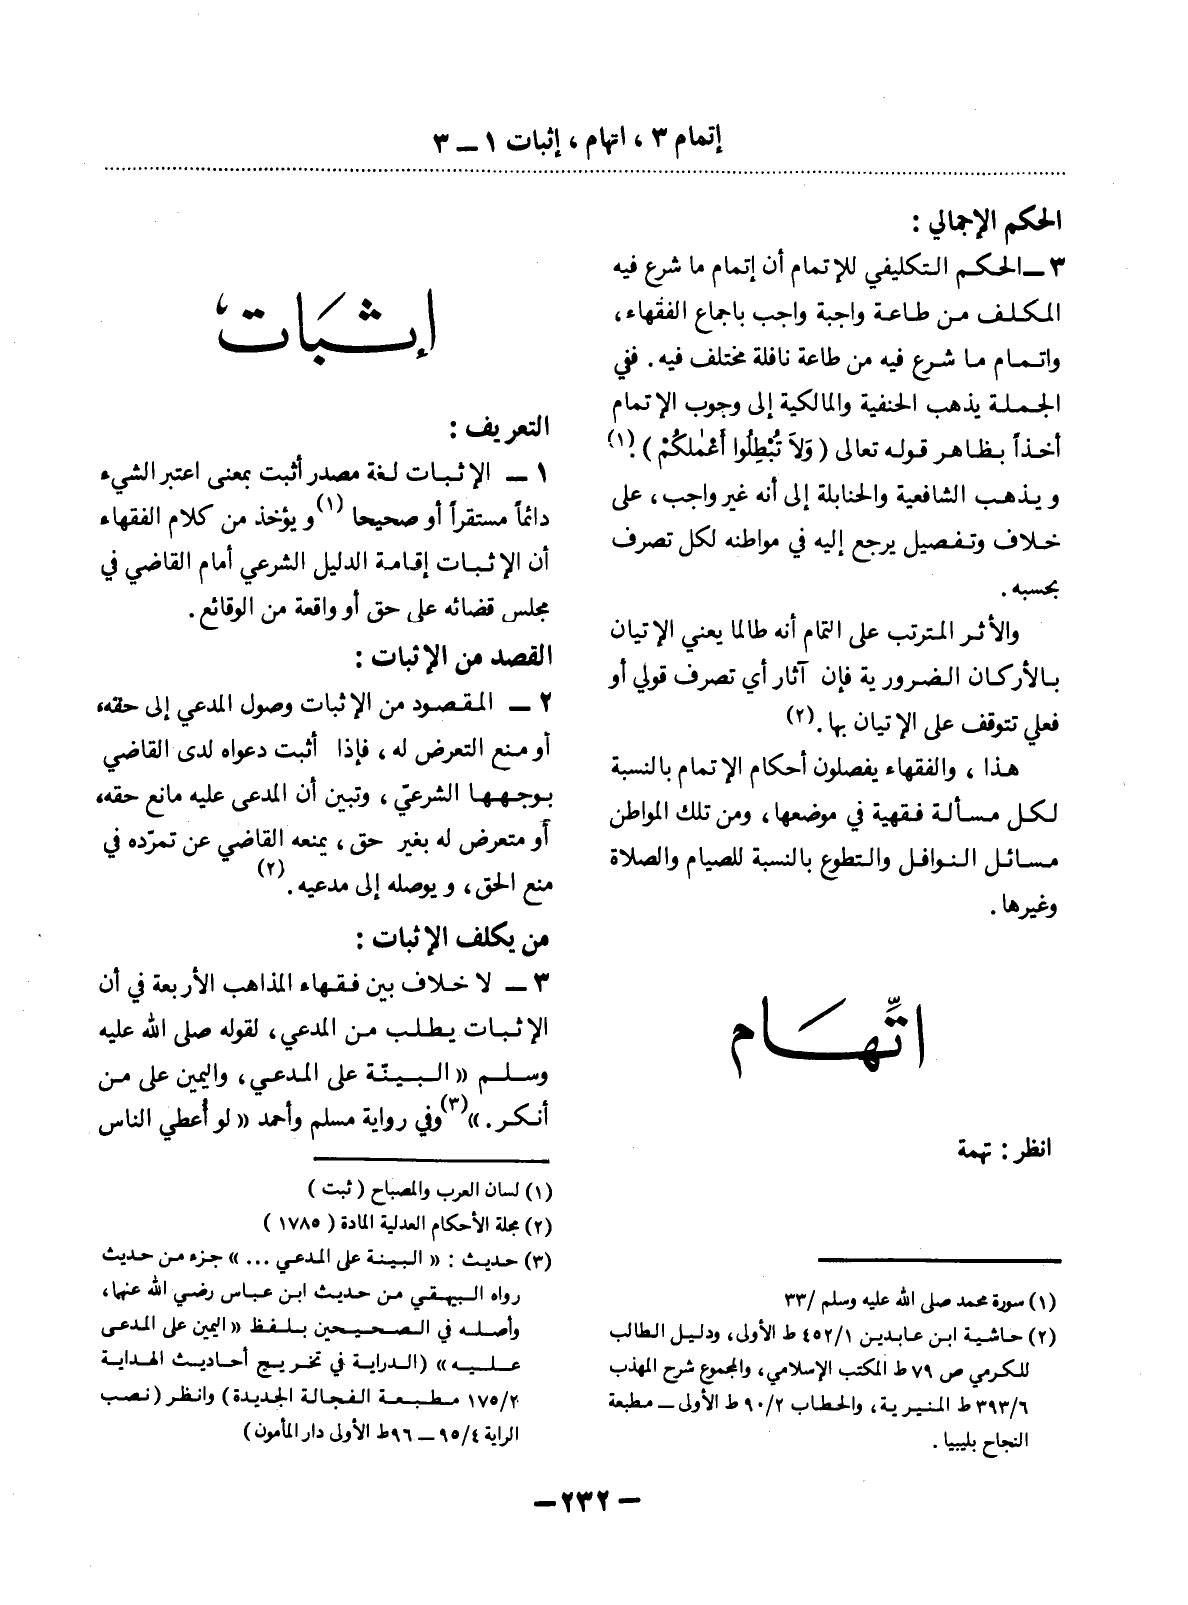 إتمام ٣ ، اتهام ، إثبات ١ ــ ٣
الحكم الإجمالي :
٣ ــ الحكم التكليفي للإتمام أن إتمام ما شرع فيه
المكلف من طاعة واجبة واجب باجماع الفقهاء ،
واتمام ما شرع فيه من طاعة نافلة مختلف فيه . ففي
الجملة يذهب الحنفية والمالكية إلى وجوب الإتمام
أخذاً بظاهر قوله تعالى ( وَلاَ تُبْطِلُوا أَعْمٰلكُمْ ) .(١)
ويذهب الشافعية والحنابلة إلى أنه غير واجب ، على
خلاف وتفصيل يرجع إليه في مواطنه لكل تصرف
بحسبه .
والأثر المترتب على التمام أنه طالما يعني الإتيان
بالأركان الضرورية فإن آثار أي تصرف قولي أو
فعلي تتوقف على الإتيان بها .(٢)
هذا ، والفقهاء يفصلون أحكام الإتمام بالنسبة
لكل مسألة فقهية في موضعها ، ومن تلك المواطن
مسائل النوافل والتطوع بالنسبة للصيام والصلاة
وغيرها .
اتِّهَام
انظر : تهمة
(١) سورة محمد صلى الله عليه وسلم /٣٣
(٢) حاشية ابن عابدين ٤٥٢/١ ط الأولى، ودليل الطالب
للكرمي ص ٧٩ ط المكتب الإسلامي، والمجموع شرح المهذب
٣٩٣/٦ ط المنيرية، والحطاب ٩٠/٢ ط الأولى ــ مطبعة
النجاح بليبيا .
إثبَات
التعريف :
١ ــ الإثبات لغة مصدر أثبت بمعنى اعتبر الشيء
دائماً مستقراً أو صحيحا (١) ويؤخذ من كلام الفقهاء
أن الإثبات إقامة الدليل الشرعي أمام القاضي في
مجلس قضائه على حق أو واقعة من الوقائع .
القصد من الإثبات :
٢ ــ المقصود من الإثبات وصول المدعي إلى حقه،
أو منع التعرض له ، فإذا أثبت دعواه لدى القاضي
بوجهها الشرعيّ ، وتبين أن المدعى عليه مانع حقه،
أو متعرض له بغير حق ، يمنعه القاضي عن تمرّده في
منع الحق ، ويوصله إلى مدعيه .(٢)
من يكلف الإثبات :
٣ ــ لا خلاف بين فقهاء المذاهب الأربعة في أن
الإثبات يطلب من المدعي ، لقوله صلى الله عليه
وسلم « البينّة على المدعي ، واليمين على من
أنكر . »(٣) وفي رواية مسلم وأحمد « لو أُعطي الناس
(١) لسان العرب والمصباح ( ثبت )
(٢) مجلة الأحكام العدلية المادة ( ١٧٨٥ )
(٣) حديث : « البينة على المدعي ... » جزء من حديث
رواه البيهقي من حديث ابن عباس رضي الله عنهما ،
وأصله في الصحيحين بلفظ « اليمين على المدعى
عليه » (الدراية في تخريج أحاديث الهداية
١٧٥/٢ مطبعة الفجالة الجديدة) وانظر (نصب
الراية ٩٥/٤ ــ ٩٦ ط الأولى دار المأمون )
ــ ٢٣٢ ــ